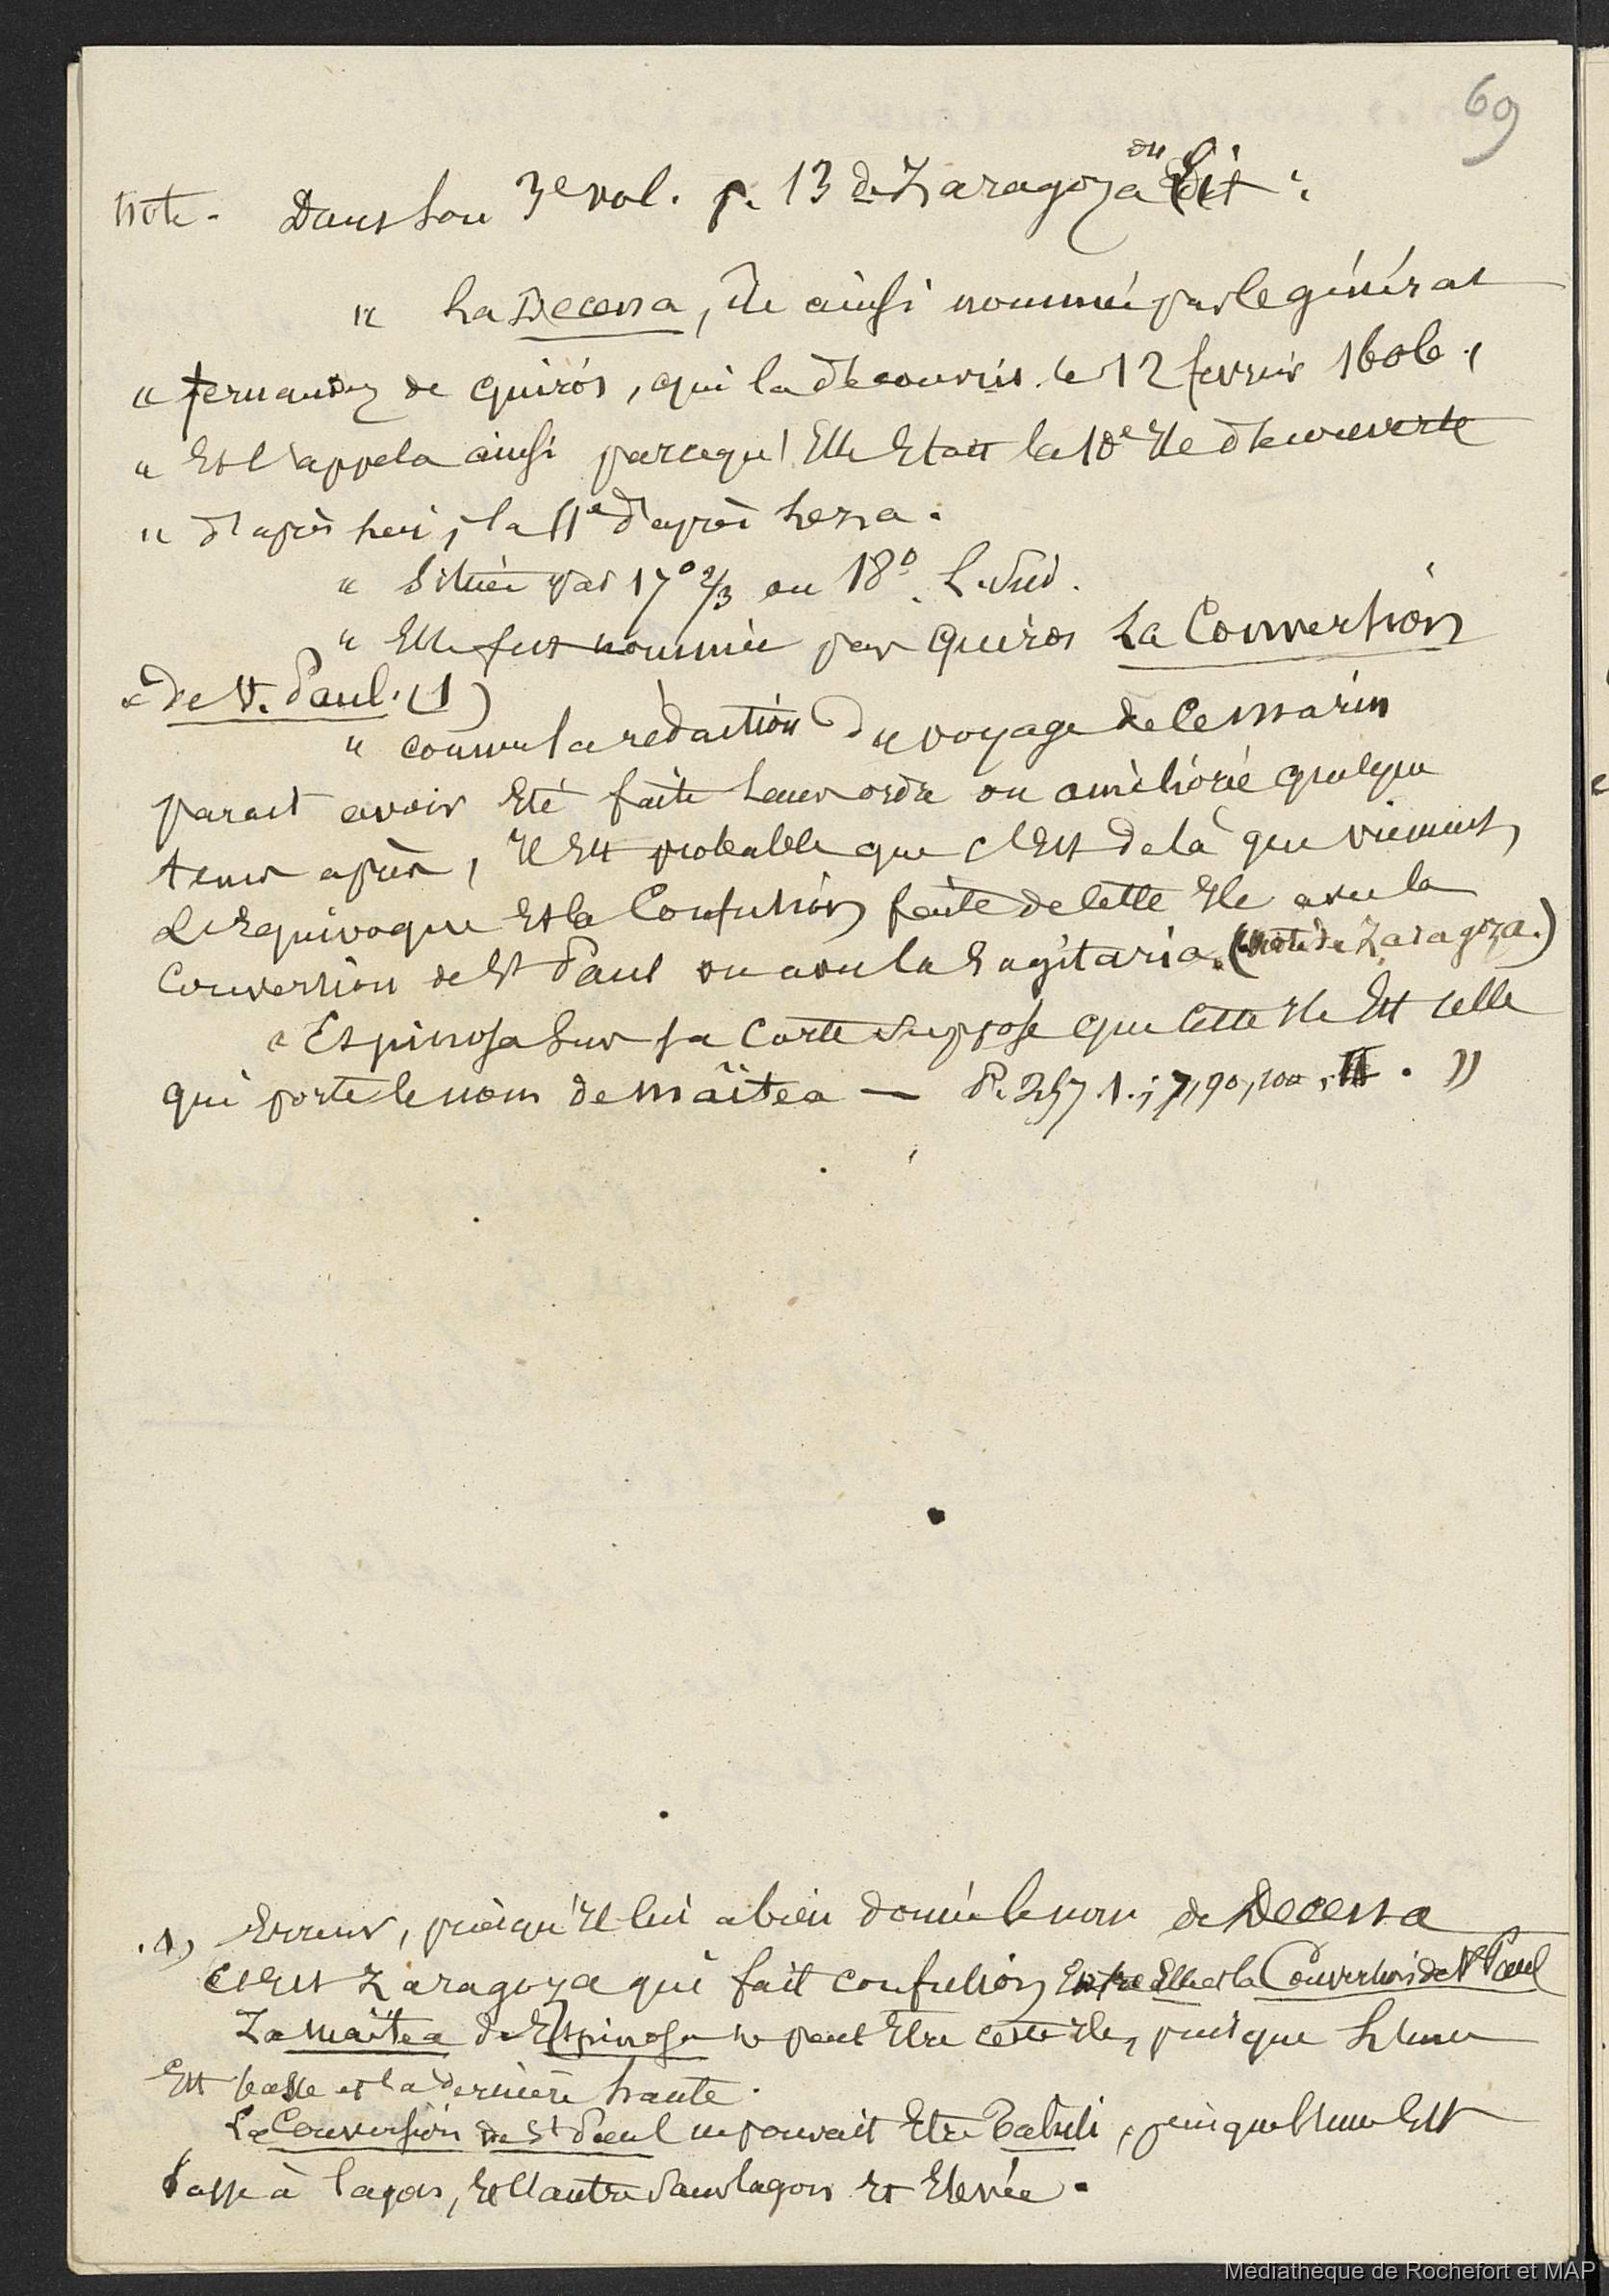 69
Note. Dans son 3e vol. p. 13 de Zaragoza on Lit :
" La Decena, île ainsi nommée par le général
" fernandez de Quiros, qui la découvrit le 12 fevrier 1606.,
" Et l'appela ainsi parcequ' Elle Etait la 10e Ile découverte
" d'après lui, la 11e d'après Leza.
" Située par 17° 2/3 ou 18° L. Sud.
" Elle fut nommée par Quiros La Conversion
" de St. Paul. (1)
" comme la rédaction du voyage de ce marin
parait avoir Eté faite sans ordre ou améliorée quelque
tems après, Il Est probable que c'Est de là que viennent,
L'Equivoque Et la Confusion faite de cette Ile avec la
Conversion de St Paul ou avec la Sagitaria. (note de Zaragoza.)
" Espinosa sur sa Carte suppose que cette Ile Est celle
qui porte le nom de Maïtea — P. 257 1.; 7, 90, 100, "
(1) Erreur, puisqu'Il lui a bien donné le nom de Decena
C'Est Zaragoza qui fait confusion Entre Elle et la Conversion de St Paul
La Maïtea de Espinosa ne peut Etre cette Ile, puisque L'une
Est basse et la dernière haute.
La Conversion de St Paul ne pouvait Etre Tahiti, puisque L'une Est
basse à lagon, Et l'autre sans lagon Et Elevée.
Médiathèque de Rochefort et MAP